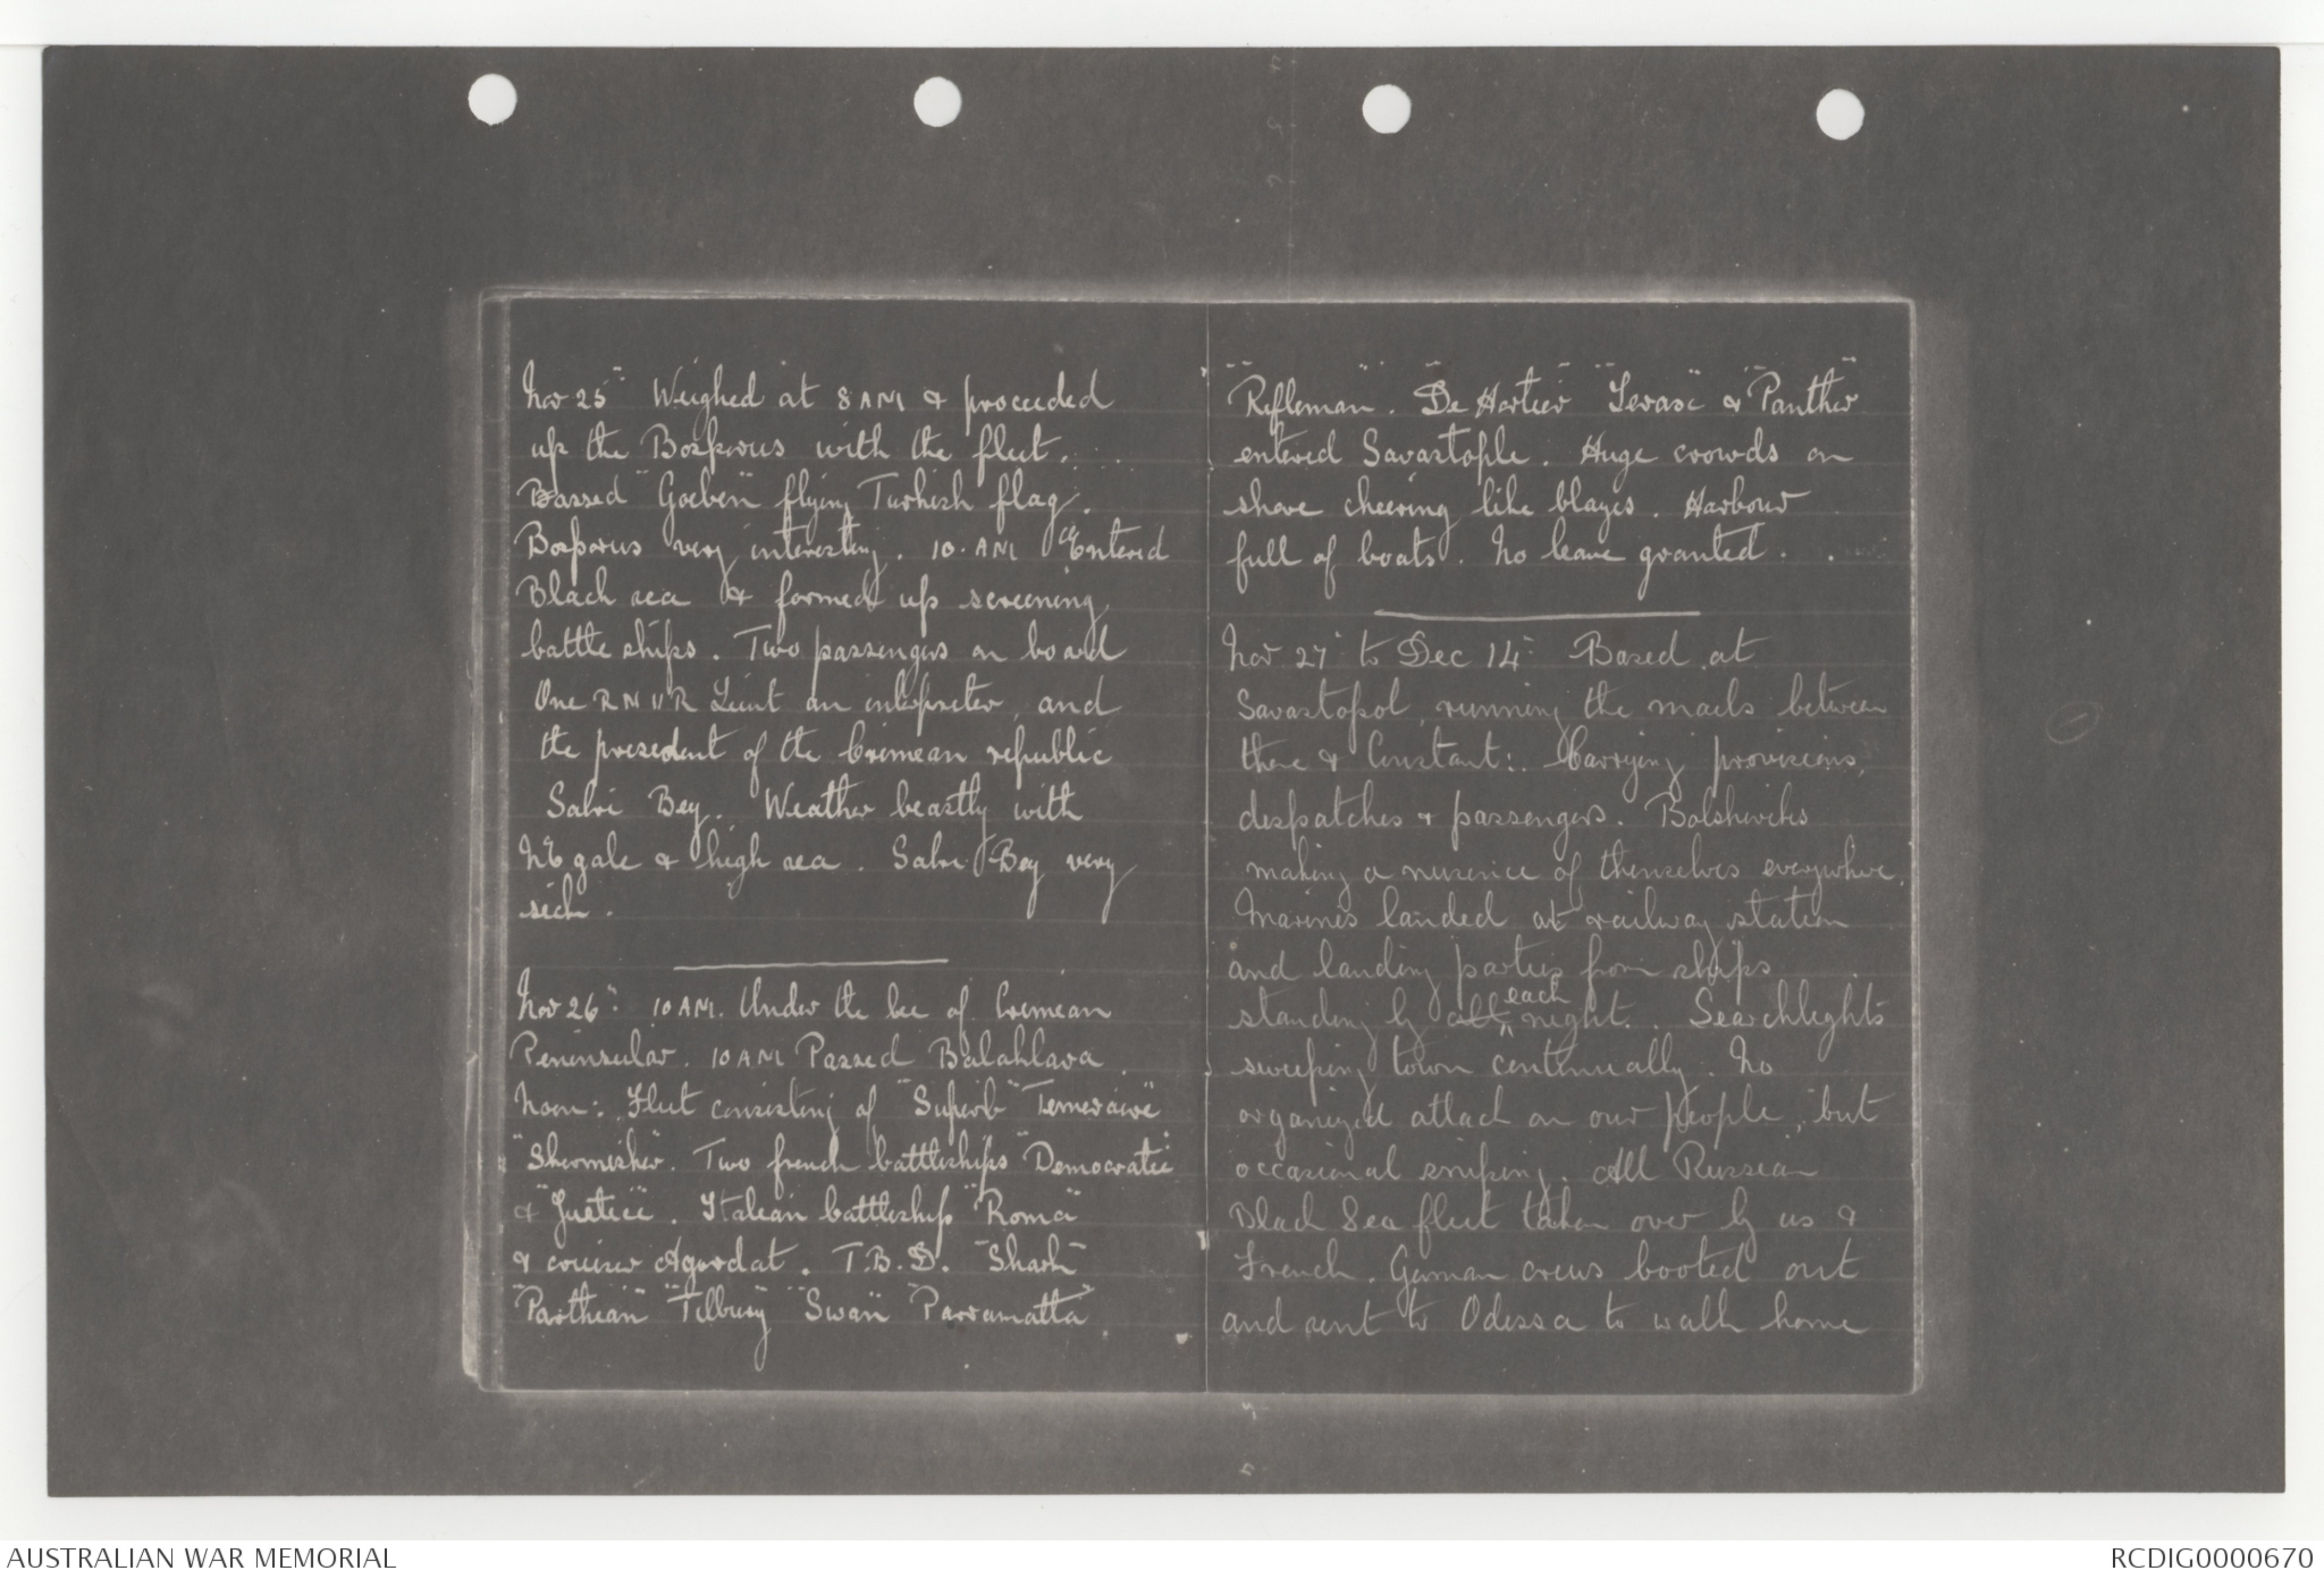 Nov 25" Weighed at 8 AM & proceeded
up the Bosporus with the fleet.
Passed "Goeben" flying Turkish flag.
Bosporus very interesting. 10. AM Entered
Black sea & formed up screening
battle ships. Two passengers on board
One RNVR Lieut an interpreter, and
the president of the Crimean republic
Sabri Bey. Weather beastly with
NE gale & high sea. Sabri Bey very
sick.
Nov 26": 10 AM. Under the lee of Crimean
Peninsular. 10 AM Passed Balahlava
Noon: Fleet consisting of "Superb" "Temeraire"
"Skirmisher". Two french battleships "Democratie"
& "Justice". Italian battleship "Roma"
& cruiser Agordat. T.B.D. "Shark"
"Parthian" "Tilbury" "Swan" "Parramatta"
"Rifleman". "De Hortier" & "Panther"
entered Savastople. Huge crowds on
shore cheering like blazes. Harbour
full of boats. No leave granted.
Nov 27" to Dec 14" Based at
Savastopol, running the mails between
there & Constant:. Carrying provisions,
despatches & passengers. Bolsheviks
making a nusence of themselves everywhere.
Marines landed at railway station
and landing parties from ships
standing by all each night. Searchlights
sweeping town continually. No
organized attack on our people, but
occasional sniping. All Russian
Black Sea fleet taken over by us &
French. German crews booted out
and sent to Odessa to walk home
AUSTRALIAN WAR MEMORIAL
RCDIG0000670